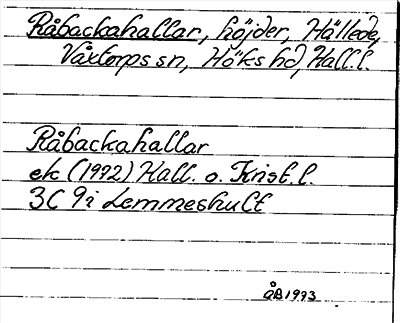 Råbackahallar, höjder, Hällede,
Våxtorps sn, Höks hd, Hall. l.
Råbackahallar
ek (1972) Hall. o. Krist. l.
3C 9i Lemmeshult
ÅB 1993